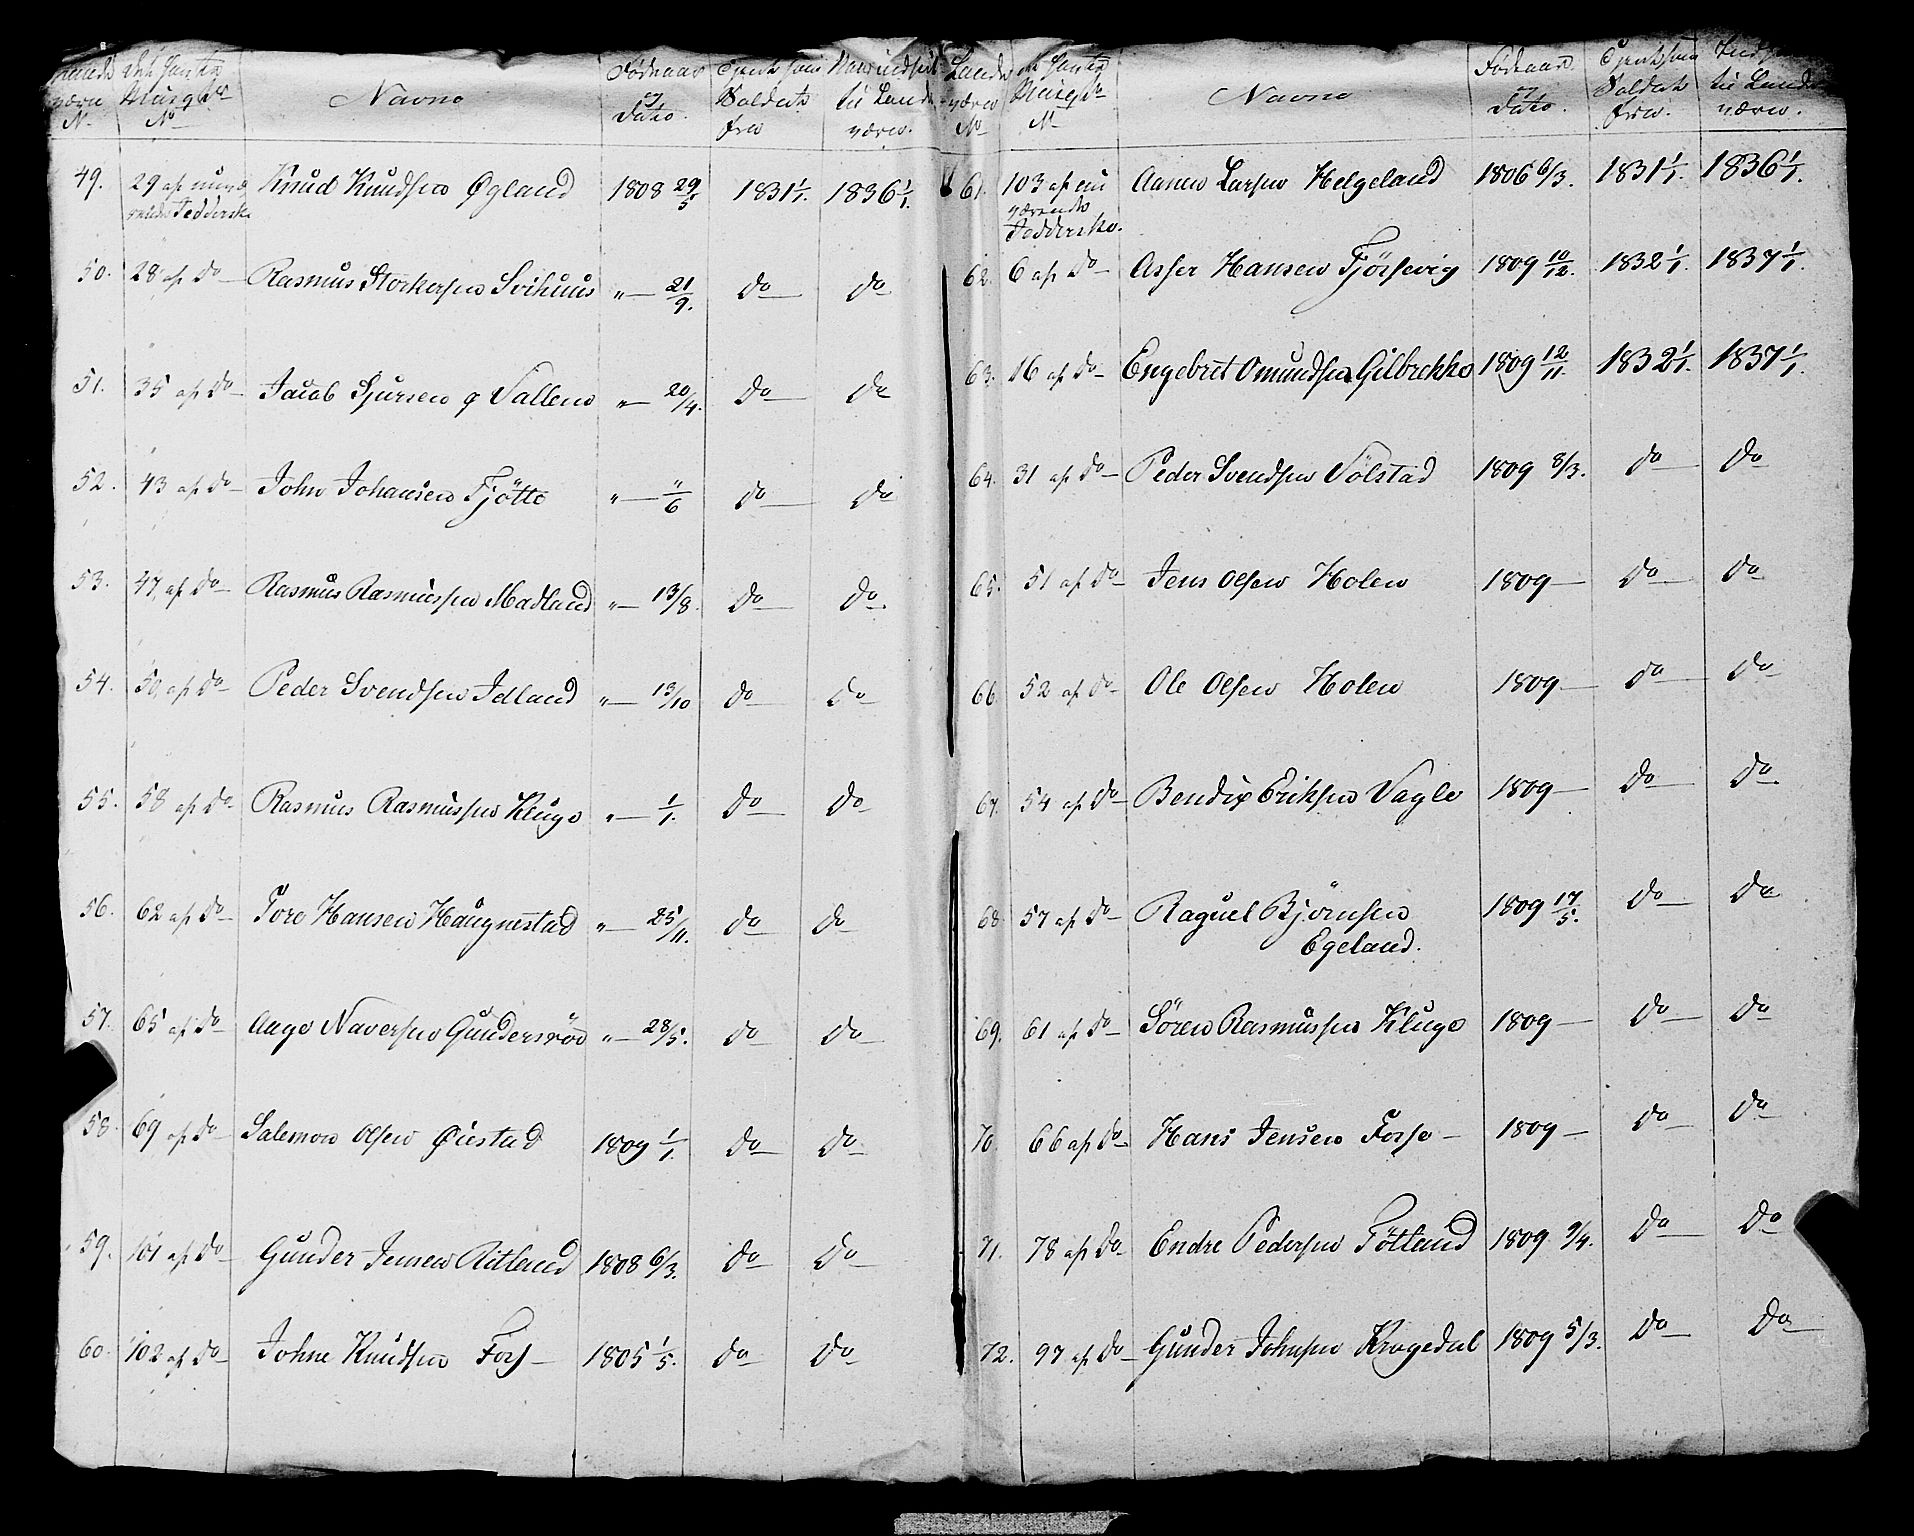 Navne
Fødeaar og Dato.
Tjent som Soldat fra
til Landeværn.
49. 29 af nuværende Knud Knudsen Øgland 1808 29/5 1831 1/1. 1836 1/1.
50. 28 af Do Rasmus Storkersen Svihuus " 21/9. Do Do
51. 35 af Do Jacob Sjursen Vallene " 20/4. Do Do
52. 43 af Do John Johansen Fjötte " "/6 Do Do
53. 47 af Do Rasmus Rasmussen Madland " 13/8. Do Do.
54. 50 af Do Peder Svendsen Idland " 13/10 Do Do
55. 58 af Do Rasmus Rasmussen Kluge " 1/1. Do Do
56. 62 af Do Tore Hansen Haugnestad " 25/11. Do Do
57. 65 af Do Aage Naversen Gundersröd " 28/5. Do Do
58. 69 af Do Salemon Olsen Øiestad 1809 1/1. Do Do
59. 101 af Do Gunder Jensen Ritland 1808 6/3. Do Do
60. 102 af Do Johne Knudsen Fors 1805 1/5. Do Do
Landeværn No
Navne
Fødeaar og Dato.
Tjent som Soldat fra.
til Landeværn.
61. 103 af nuværende Aanen Larsen Helgeland 1806 6/3. 1831 1/1. 1836 1/1.
62. 6 af Do Asser Hansen Fjörsevig 1809 10/12. 1832 1/1. 1837 1/1.
63. 16 af Do Engebret Omundsen Gilbrekke 1809 12/11. 1832 1/1. 1837 1/1.
64. 31 af Do Peder Svendsen Sölstad 1809 8/3. Do Do
65. 51 af Do Jens Olsen Holen 1809 Do Do
66. 52 af Do Ole Olsen Holen 1809 Do Do
67. 54 af Do Bendix Eriksen Vagle 1809 Do Do
68. 57 af Do Raguel Björnsen 1809 17/5. Do Do
Egeland.
69. 61 af Do Sören Rasmussen Kluge 1809 Do Do
70. 66 af Do Hans Jensen Forse 1809 Do Do
71. 78 af Do Endre Pedersen Tötland 1809 9/4. Do Do
72. 97 af Do Gunder Johnsen Kragedal 1809 5/3. Do Do